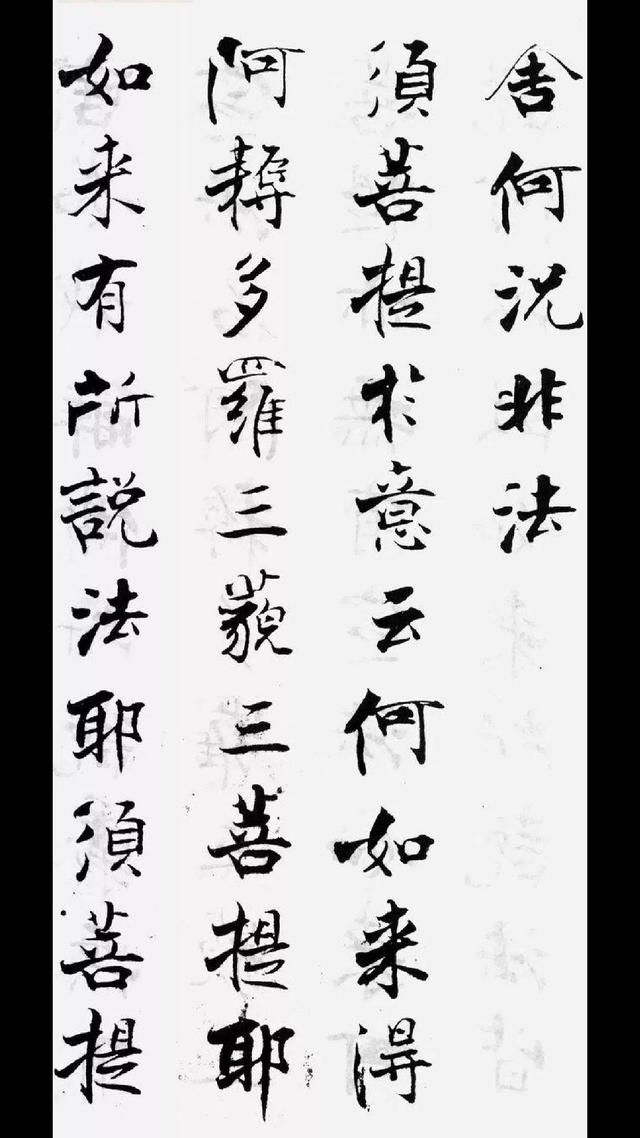 舍何況非法
須菩提於意云何如来得
阿耨多羅三藐三菩提耶
如来有所説法耶須菩提